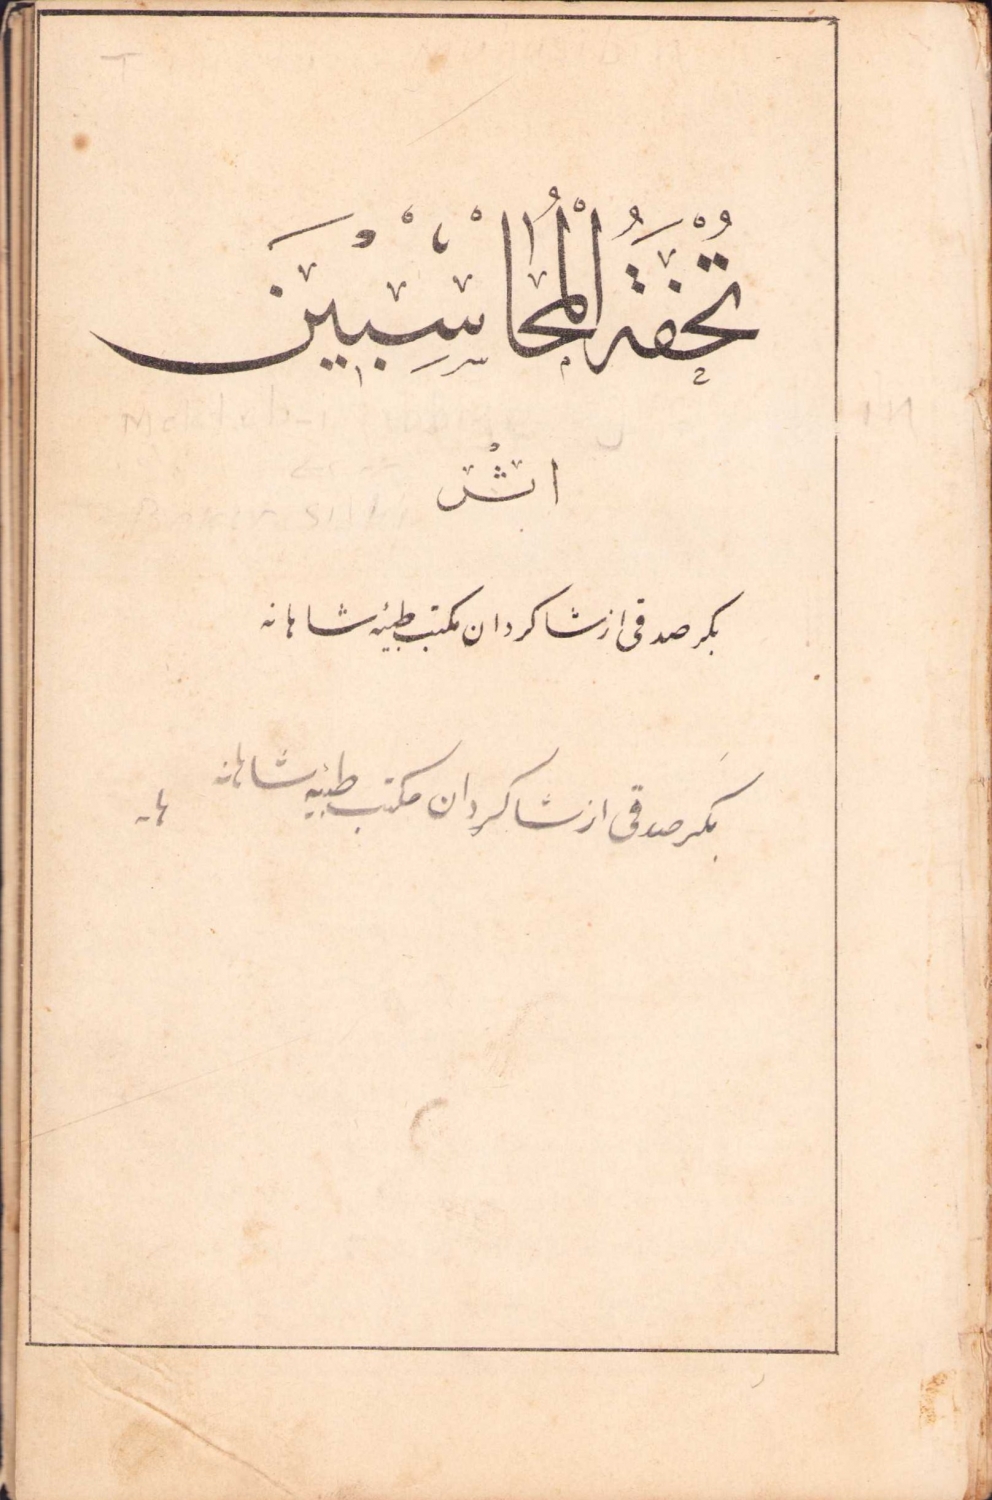 تُحْفَةُ الْمُحَاسِبْيِنَ
اثر
بكر صدقى از شاكردان مكتب طبيۀ شاهانه
بكر صدقى از شاكردان مكتب طبيۀ شاهانه